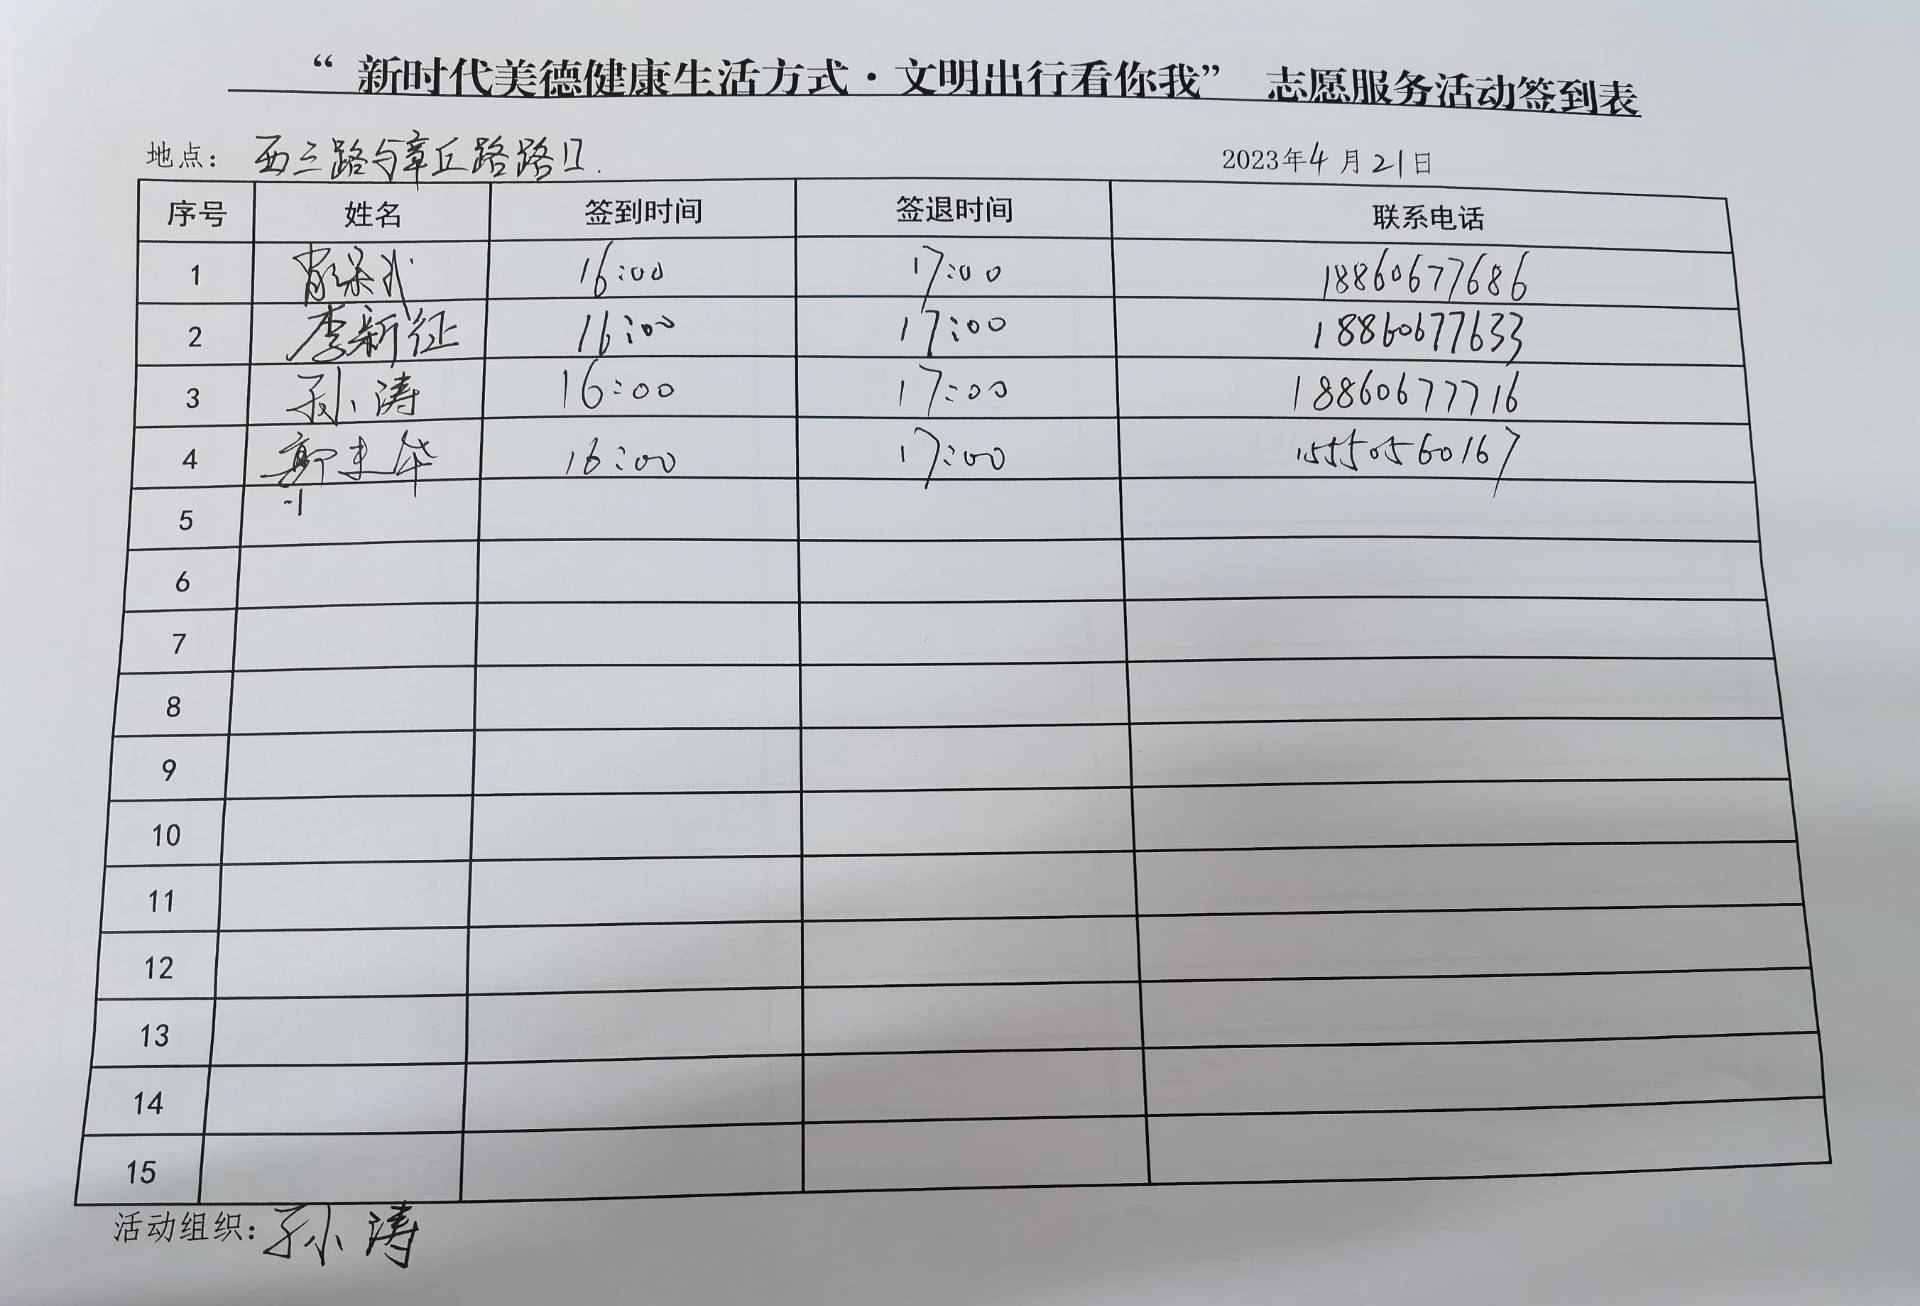 “新时代美德健康生活方式·文明出行看你我” 志愿服务活动签到表
地点： 西三路与章丘路路口. 2023年4月21日
序号 姓名 签到时间 签退时间 联系电话
1 16:00 17:00 18860677686
2 李新征 16:00 17:00 18860677633
3 孙涛 16:00 17:00 18860677716
4 16:00 17:00 15550560167
5
6
7
8
9
10
11
12
13
14
15
活动组织：孙涛